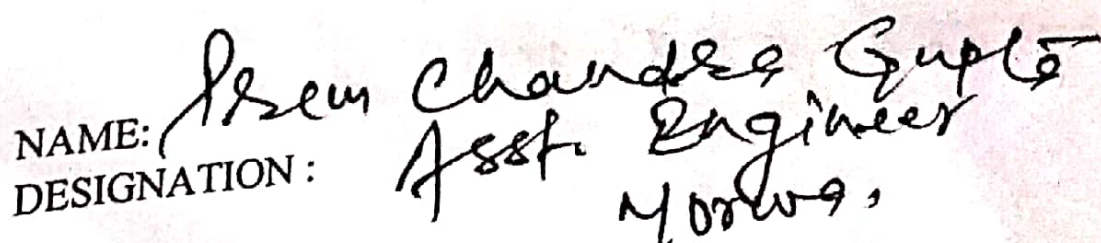 NAME: Prem Chandra Gupta
DESIGNATION : Asst. Engineer
Morwa,